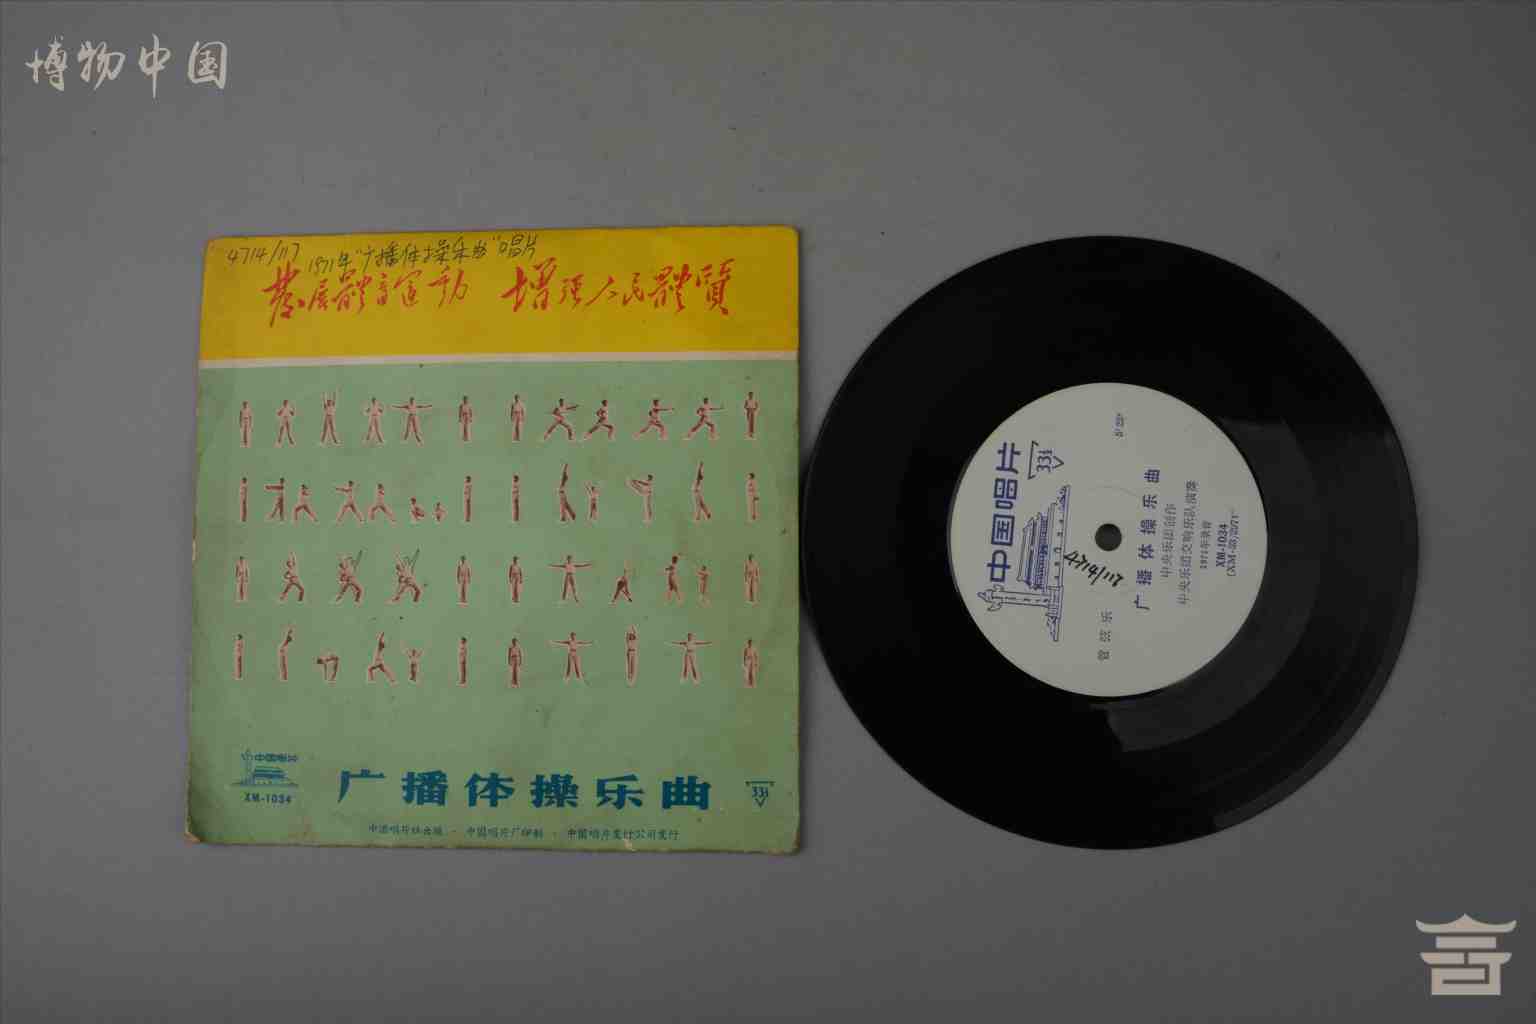 博物中国
4714/117 1971年“广播体操乐曲”唱片
發展體育運動 增强人民體質
中国唱片
XM-1034
广播体操乐曲
33⅓
中国唱片社出版 · 中国唱片厂印制 · 中国唱片发行公司发行
中国唱片
33⅓
4714/117
管弦乐
广播体操乐曲
中央乐团创作
中央乐团交响乐队演奏
1971年录音
XM-1034